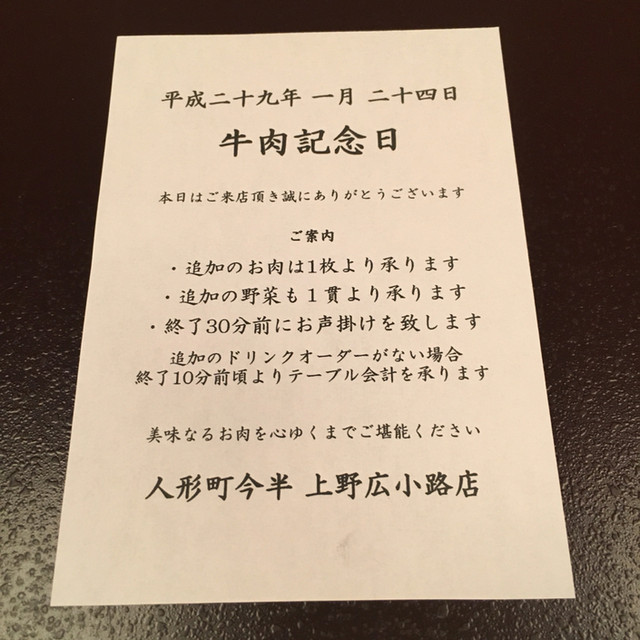 平成二十九年 一月 二十四日
牛肉記念日
本日はご来店頂き誠にありがとうございます
ご案内
・追加のお肉は1枚より承ります
・追加の野菜も１貫より承ります
・終了30分前にお声掛けを致します
追加のドリンクオーダーがない場合
終了10分前頃よりテーブル会計を承ります
美味なるお肉を心ゆくまでご堪能ください
人形町今半 上野広小路店